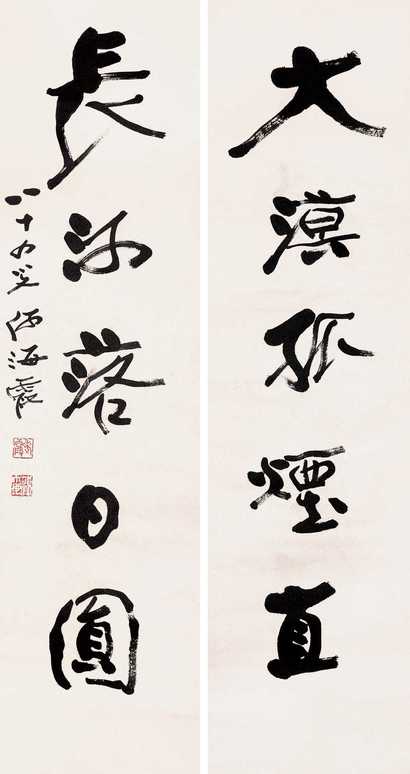 大漠孤煙直
長河落日圓
八十九叟何海霞